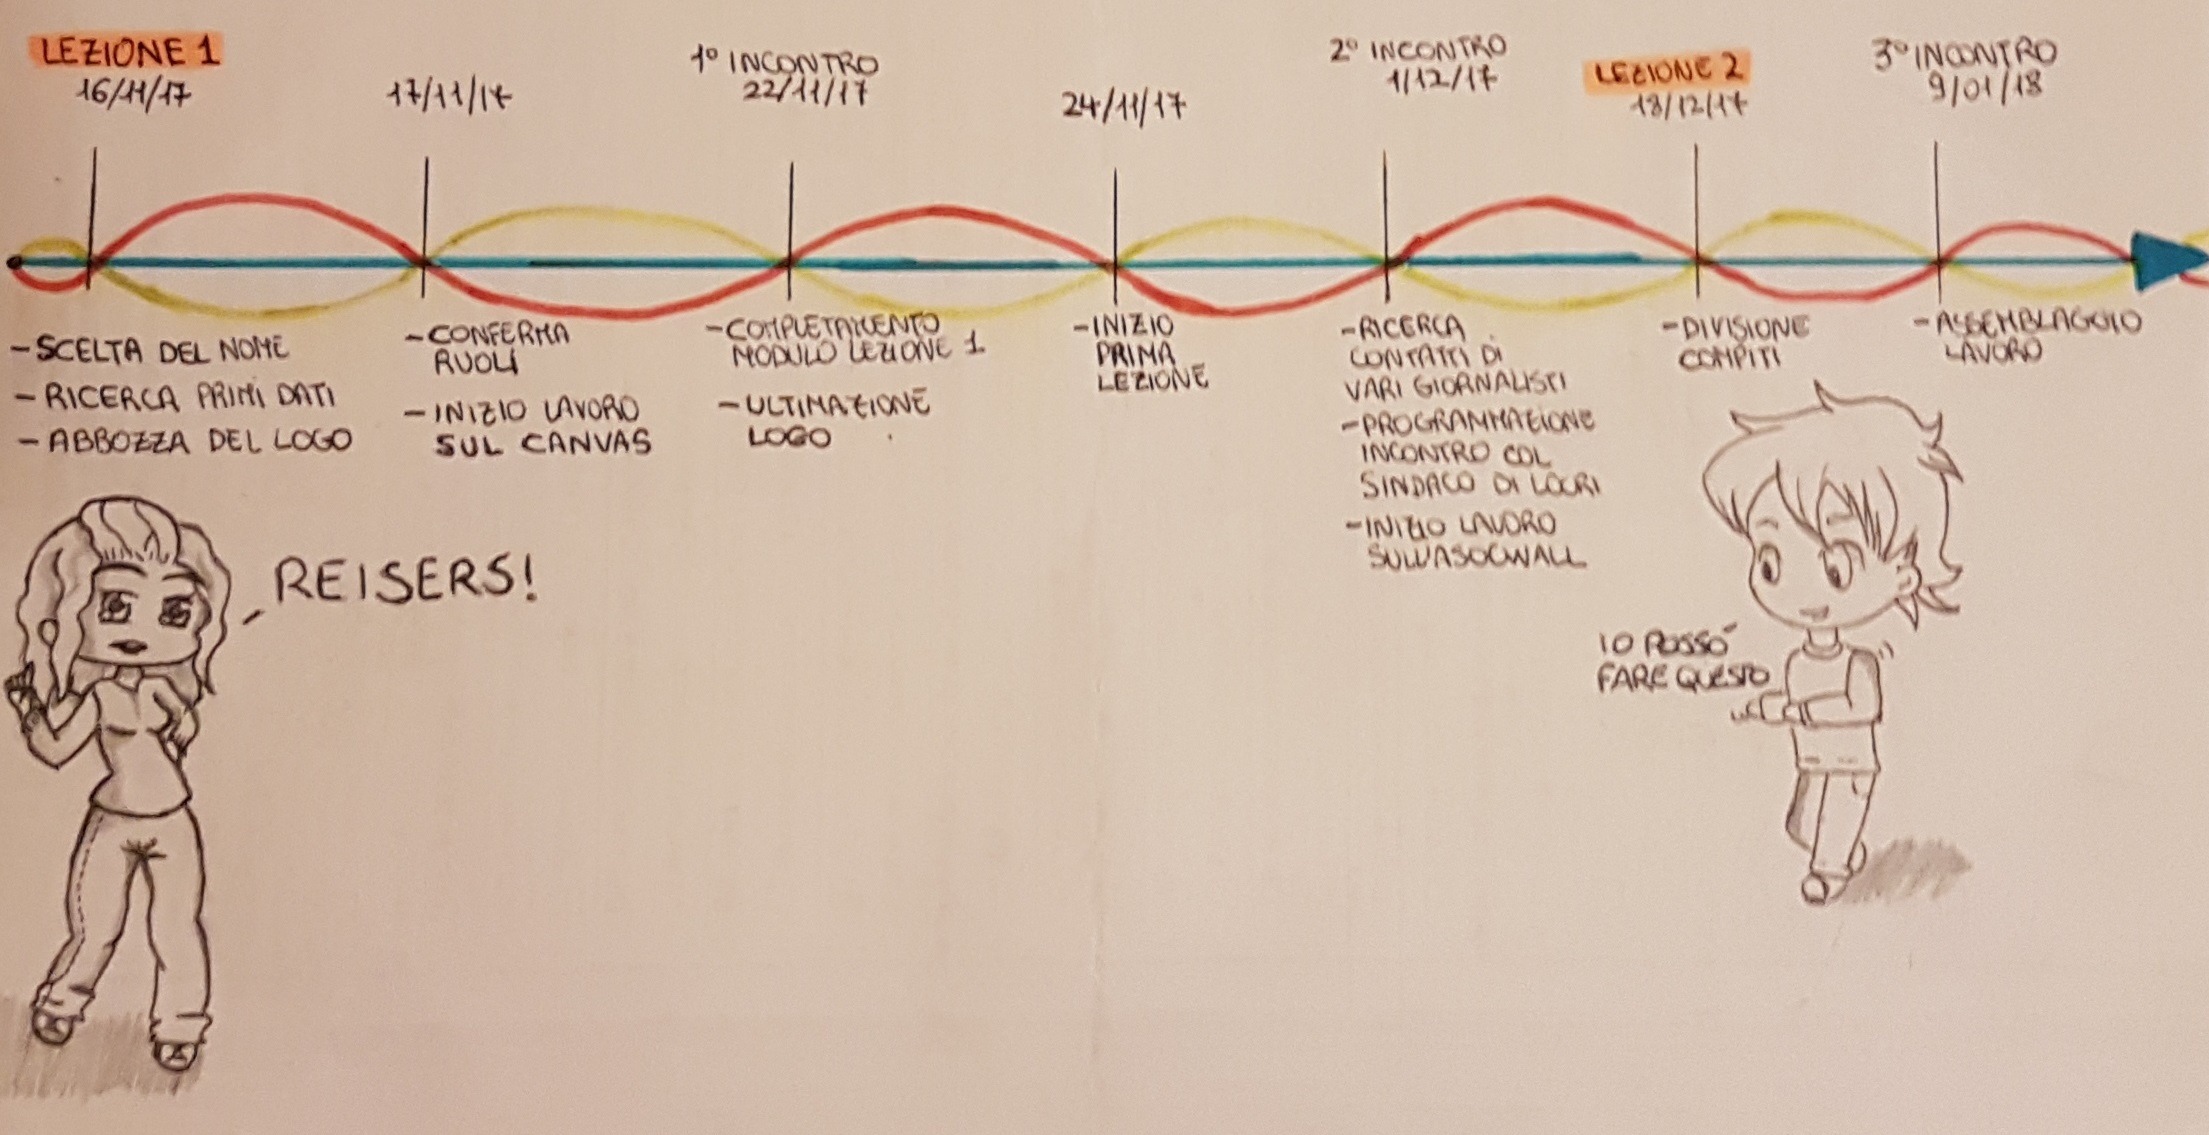 LEZIONE 1
16/11/17
17/11/17
1° INCONTRO
22/11/17
24/11/17
2° INCONTRO
1/12/17
LEZIONE 2
18/12/17
3° INCONTRO
9/01/18
- SCELTA DEL NOME
- RICERCA PRIMI DATI
- ABBOZZA DEL LOGO
- CONFERMA
RUOLI
- INIZIO LAVORO
SUL CANVAS
- COMPLETAMENTO
MODULO LEZIONE 1
- ULTIMAZIONE
LOGO
- INIZIO
PRIMA
LEZIONE
- RICERCA
CONTATTI DI
VARI GIORNALISTI
- PROGRAMMAZIONE
INCONTRO COL
SINDACO DI LOCRI
- INIZIO LAVORO
SULL'ASOCWALL
- DIVISIONE
COMPITI
- ASSEMBLAGGIO
LAVORO
REISERS!
IO POSSO
FARE QUESTO